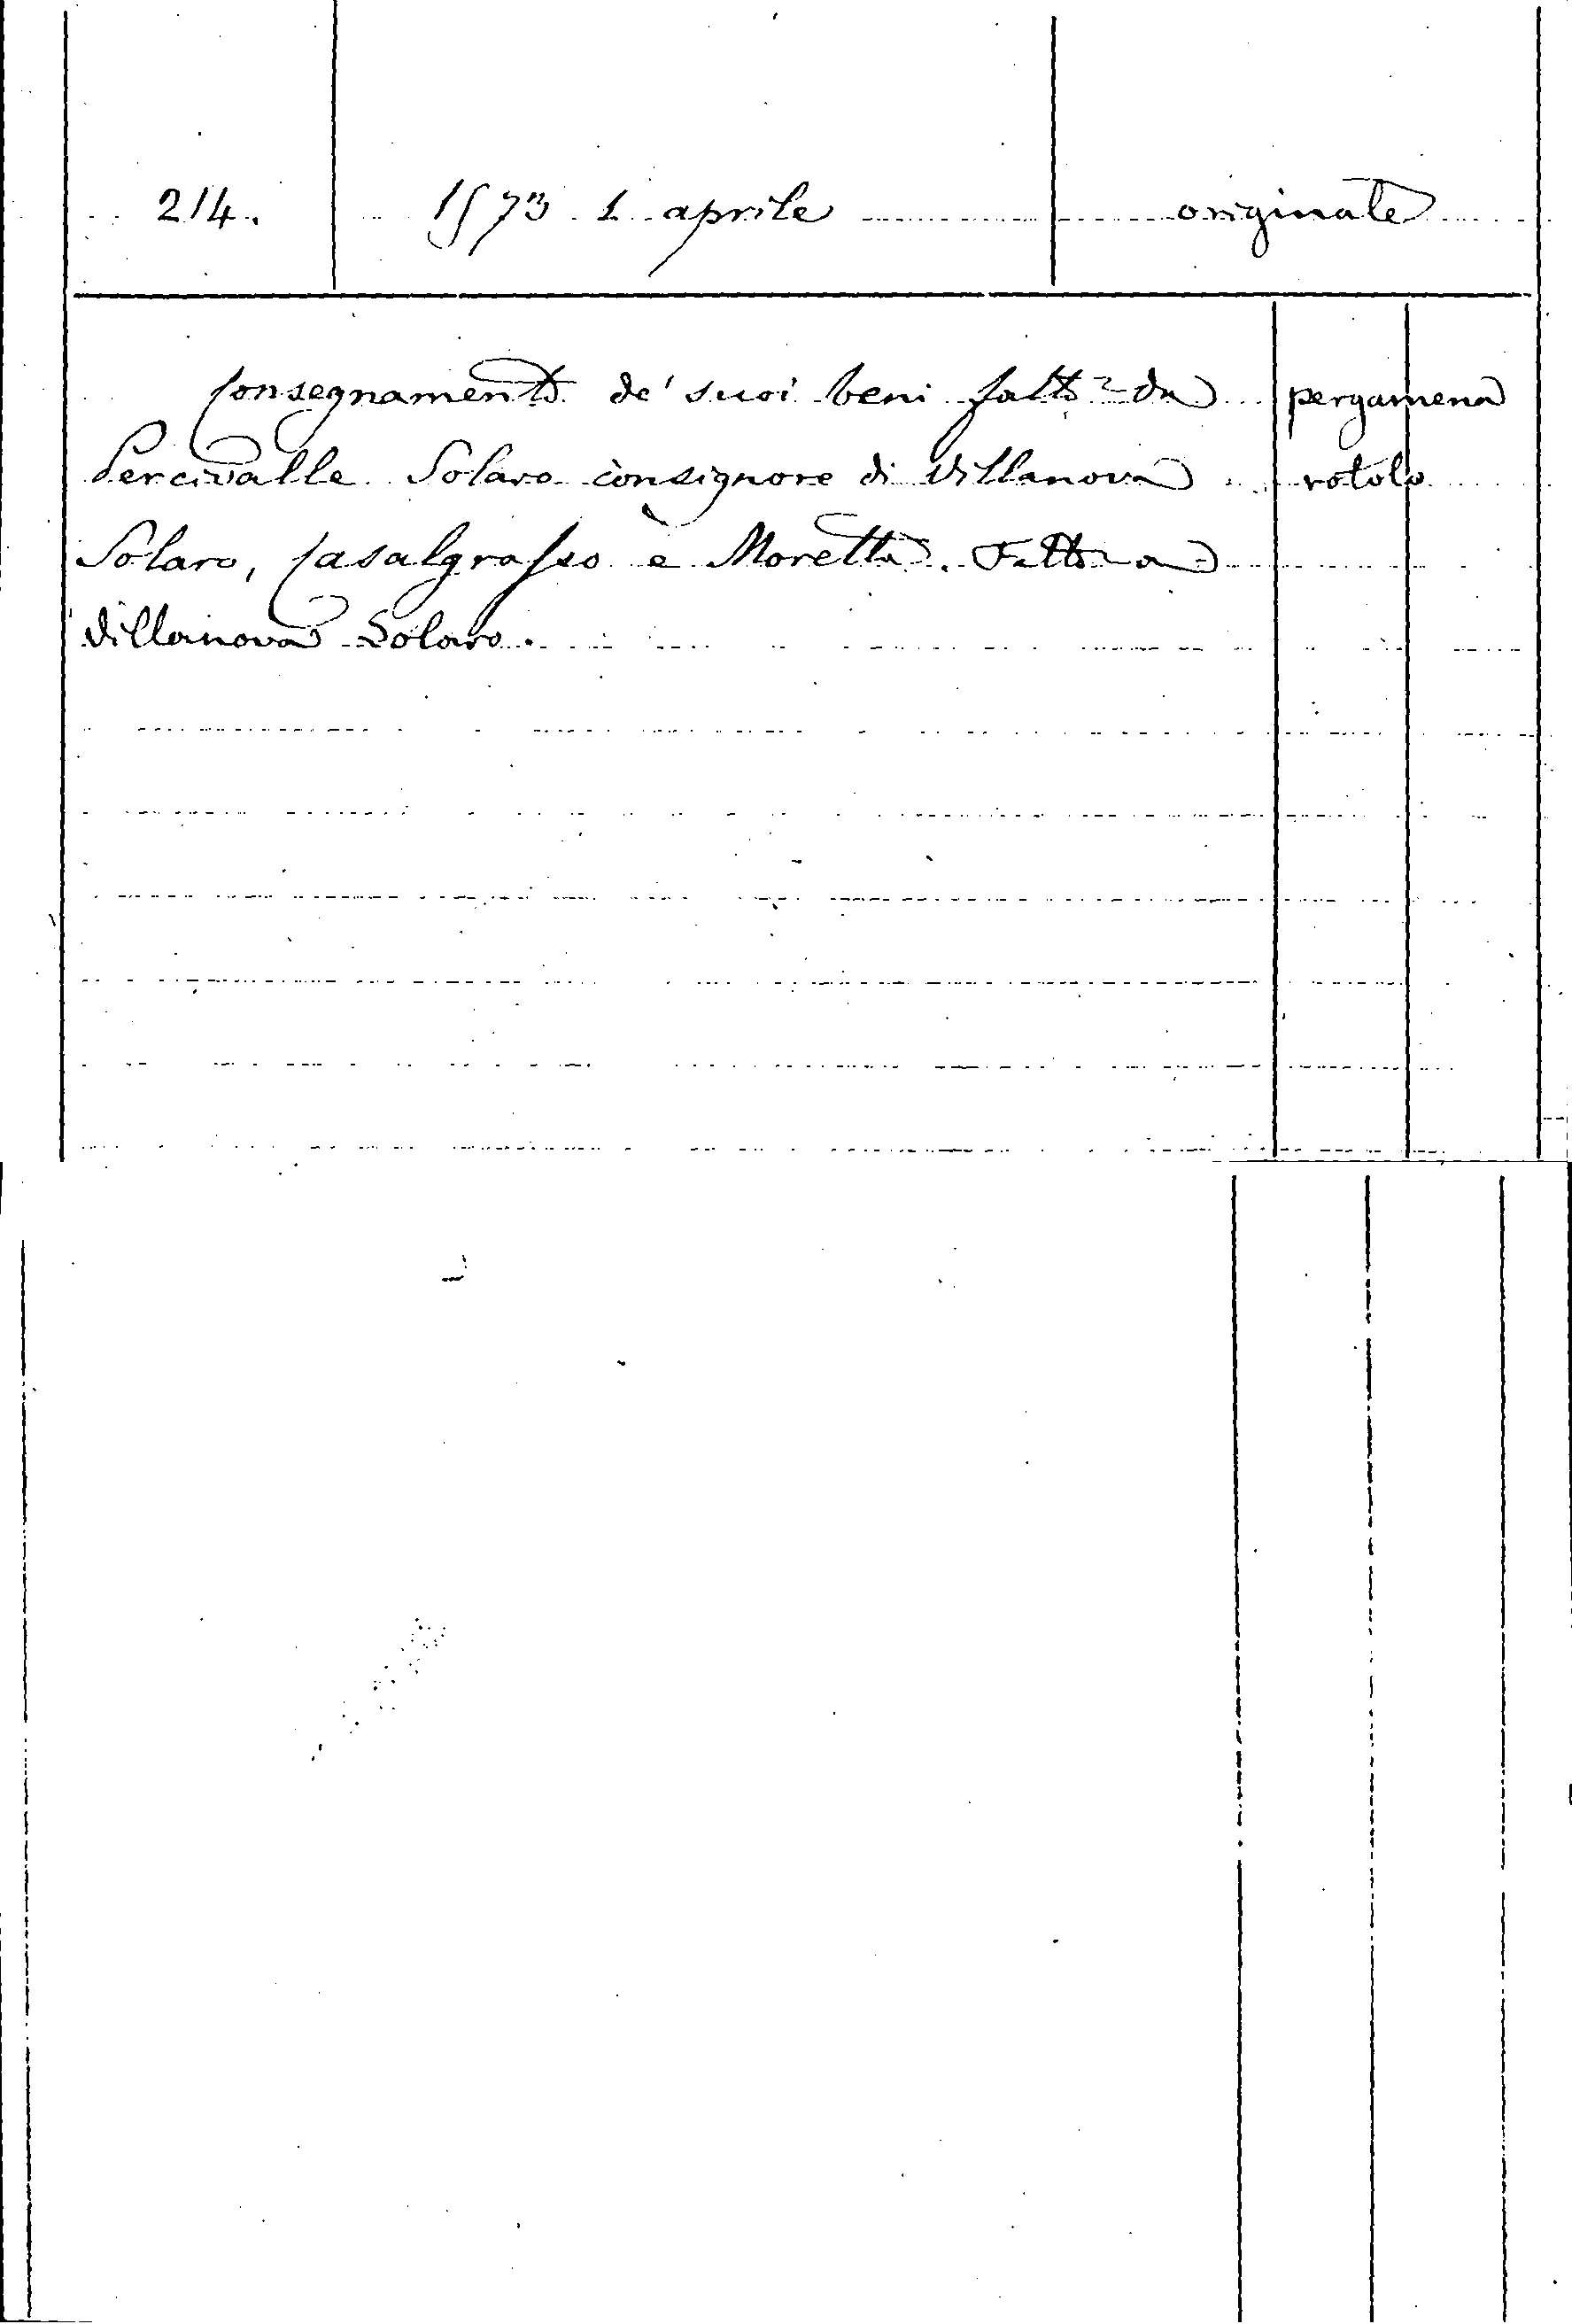 214. 1573 1 aprile originale
Consegnamento de' suoi beni fatto da pergamena
Percivalle Solaro consignore di Villanova rotolo
Solaro, Casalgrasso e Moretta. Fatto a
Villanova Solaro.